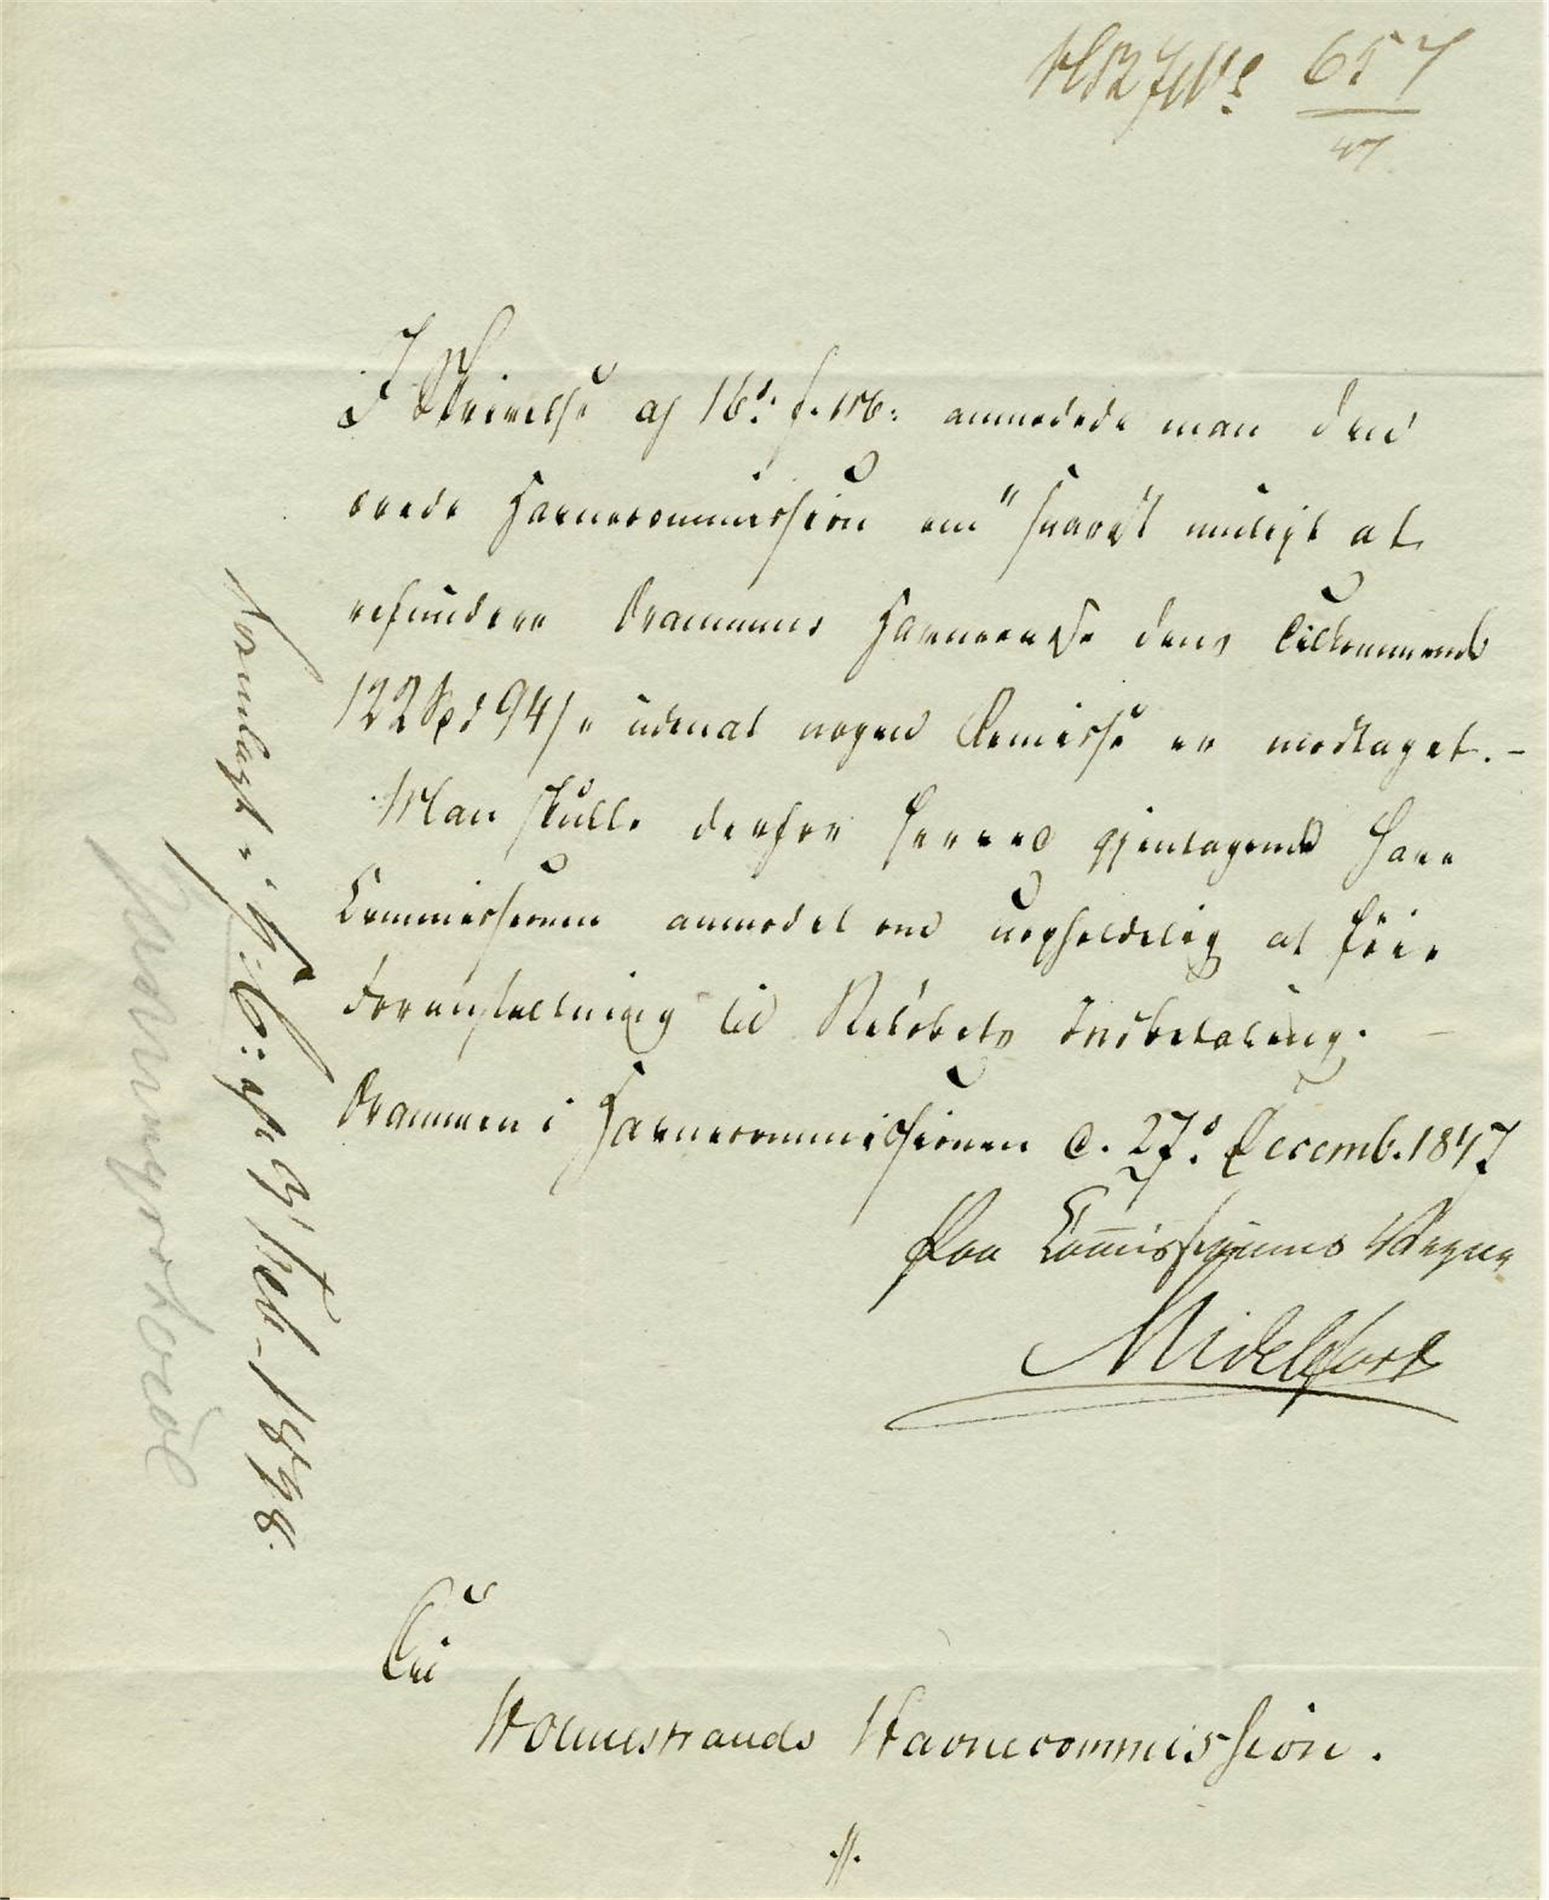 657
47
I Skrivelse af 16de f. M. anmodede man den
ærede Havnecommission om snarest muligt at
refundere Drammens Havnecasse dens Tilkommende
122 Spd 94 s uden at nogen Remisse er modtaget. -
Man skulle derfor herved gjentagende have
Commissionen anmodet om uopholdelig at føie
Foranstaltning til Beløbets Indbetaling. -
Drammen i Havnecommissionen d. 27d Decemb. 1847
Paa Commissionens Vegne
Midelfart
Til
Holmestrands Havnecommission.
Fremlagt i H: C: 3 Feb. 1848.